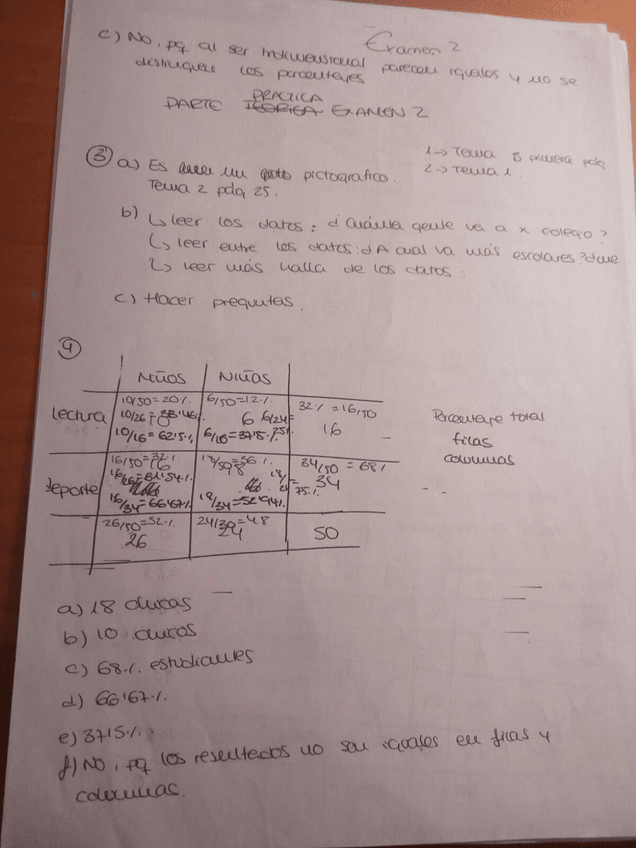 Examen 2
c) No, pq al ser tridimensional parecen iguales y no se
distinguen los porcentajes
PARTE PRACTICA TEORICA EXAMEN 2
1→ Tema 5 primera pdg
2→ Tema 1.
③ a) Es un pictografico.
Tema 2 pdg 25.
b) ↳ leer los datos: ¿Cuánta gente va a x colegio?
↳ leer entre los datos: ¿A cual va más escolares?
↳ leer más halla de los datos
c) Hacer preguntas.
④
Niños Niñas
10/50=20% 6/50=12% 32% = 16/50
Lectura 10/26= 38'46% 6 6/24= 25% 16
10/16=62'5% 6/16=37'5%
Porcentaje total
filas
columnas
16/50=32% 18/50=36% 34/50 = 68%
deporte 16/26=61'54% 18/24= 75% 34
18/34=52'94%
26/50=52% 24/=48
26 24 50
a) 18 chicas
b) 10 chicos
c) 68% estudiantes
d) 66'67%
e) 37'5%
f) No, pq los resultados no son iguales en filas y
columnas.